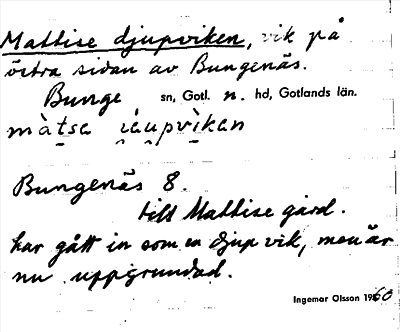 Mattise djupviken, vik på
östra sidan av Bungenäs.
Bunge sn, Gotl. n. hd, Gotlands län.
màtsa i̯èupvìkan
Bungenäs 8.
till Mattise gård.
har gått in som en djup vik, men är
nu uppgrundad.
Ingemar Olsson 1960